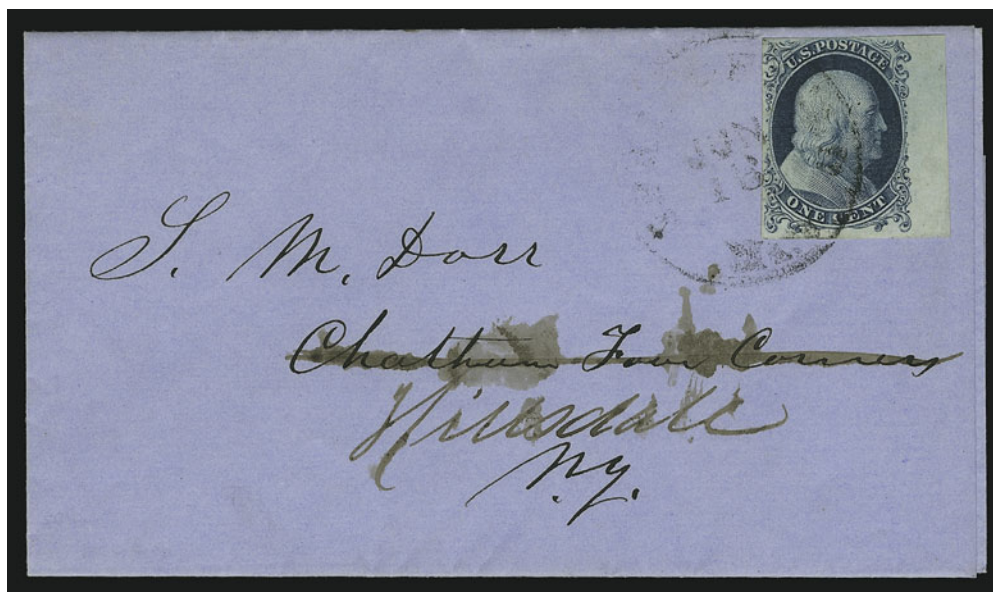 U.S. POSTAGE
ONE CENT
S. M. Dorr
Chatham Four Corners
Hillsdale
N.Y.